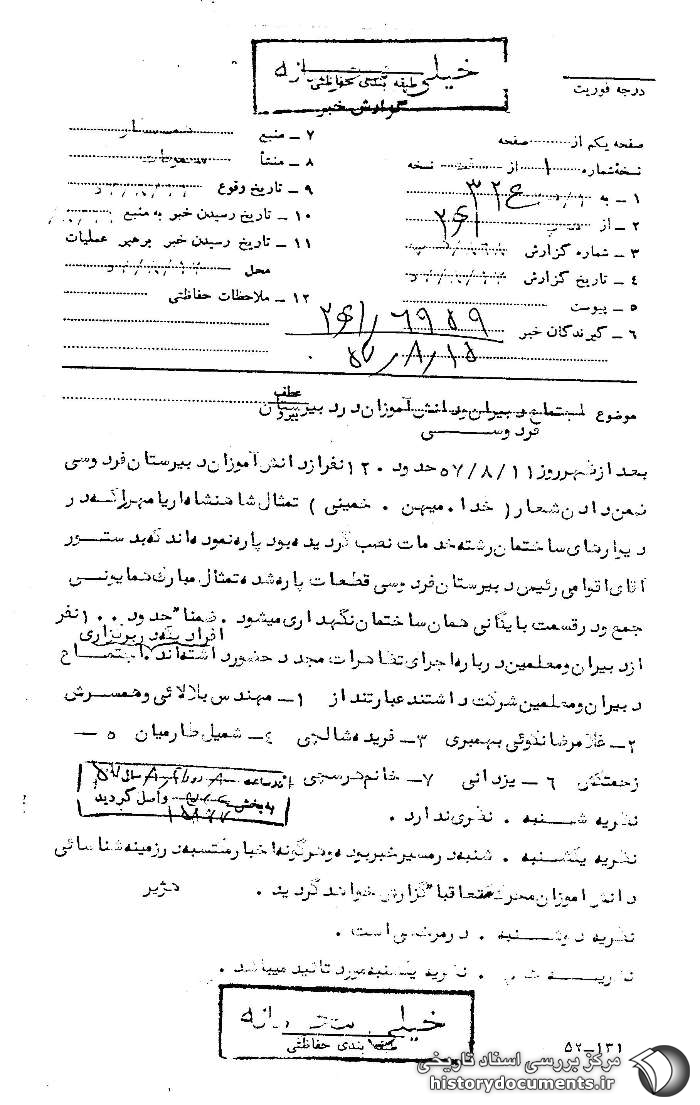 خیلی محرمانه
طبقه بندی حفاظتی
گزارش خبر
درجه فوریت
صفحه یکم از صفحه
نسخه شماره ۱ از نسخه
۱ – به ۳۲ع
۲ – از
۳ – شماره گزارش
۴ – تاریخ گزارش
۵ – پیوست
۶ – گیرندگان خبر
۷ – منبع
۸ – منشأ
۹ – تاریخ وقوع
۱۰ – تاریخ رسیدن خبر به منبع
۱۱ – تاریخ رسیدن خبر برهبر عملیات
محل
۱۲ – ملاحظات حفاظتی
۵۷/۸/۱۵
موضوع اجتماع دبیران و دانش آموزان در دبیرستان
عطف
پیرو
فردوسی
بعد از ظهر روز ۵۷/۸/۱۱ حدود ۱۲۰ نفر از دانش آموزان دبیرستان فردوسی
ضمن دادن شعار ( خدا . میهن . خمینی ) تمثال شاهنشاه آریامهر را که در
دیوارهای ساختمان رشته خدمات نصب گردیده بود پاره نموده اند که بدستور
آقای اقوامی رئیس دبیرستان فردوسی قطعات پاره شده تمثال مبارک همایونی
جمع و در قسمت بایگانی همان ساختمان نگهداری میشود . ضمنا" حدود ۱۰۰ نفر
از دبیران و معلمین درباره اجرای تظاهرات مجدد حضور داشته اند . اجتماع
دبیران و معلمین شرکت داشتند عبارتند از ۱– مهندس بالالائی و همسرش
۲– غلامرضا بهمبری ۳– فریده شالچی ۴– شمیل طارمیان ۵ –
زحمتکش ۶ – یزدانی ۷– خانم
نظریه شنبه . نظری ندارد .
واصل گردید
نظریه یکشنبه . شنبه در مسیر خبر بوده و هرگونه اخبار منتسبه در زمینه شناسائی
دانش آموزان محرک متعاقبا" گزارش خواهد گردید . هژبر
نظریه دوشنبه . در مرخصی است .
نظریه . نظریه یکشنبه مورد تائید میباشد .
خیلی محرمانه
طبقه بندی حفاظتی
۵۲–۱۳۱
مرکز بررسی اسناد تاریخی
historydocuments.ir